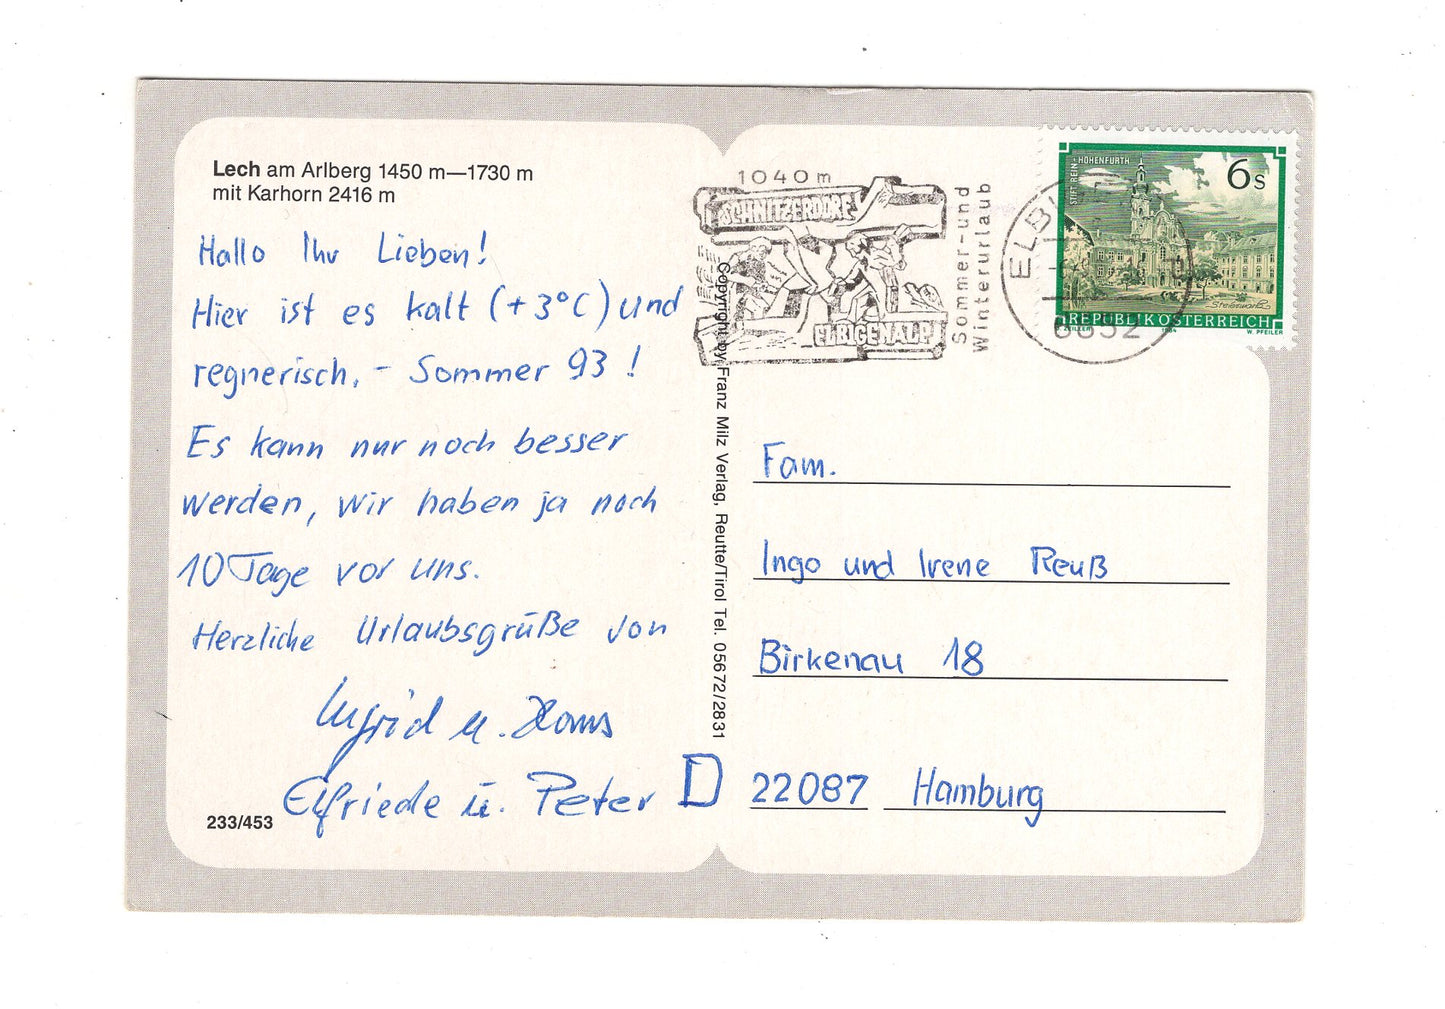 Lech am Arlberg 1450 m—1730 m
mit Karhorn 2416 m
Hallo Ihr Lieben!
Hier ist es kalt (+3°C) und
regnerisch. - Sommer 93 !
Es kann nur noch besser
werden, wir haben ja noch
10 Tage vor uns.
Herzliche Urlaubsgrüße von
Ingrid u. Hans
Elfriede u. Peter
233/453
Copyright by Franz Milz Verlag, Reutte/Tirol Tel. 05672/2831
1040 m
SCHNITZERDORF
ELBIGENALP
Sommer-und
Winterurlaub
6652
STIFT REIN-HOHENFURTH
6s
REPUBLIK ÖSTERREICH
1984
W. PFEILER
Fam.
Ingo und Irene Reuß
Birkenau 18
D 22087 Hamburg